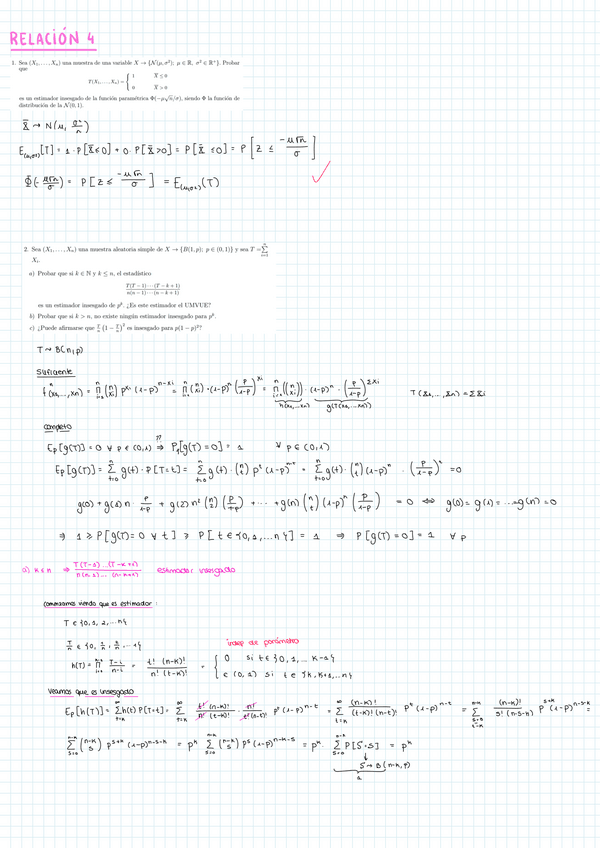 RELACIÓN 4
1. Sea (X₁, . . . , Xₙ) una muestra de una variable X → {N(μ, σ²); μ ∈ ℝ, σ² ∈ ℝ⁺}. Probar
que
T(X₁, . . . , Xₙ) = { 1 X̄ ≤ 0
0 X̄ > 0
es un estimador insesgado de la función paramétrica Φ(−μ√n/σ), siendo Φ la función de
distribución de la N(0, 1).
X̄ → N(μ, σ²/n)
E(μ,σ²)[T] = 1 · P[X̄ ≤ 0] + 0 · P[X̄ > 0] = P[X̄ ≤ 0] = P[Z ≤ −μ√n/σ]
Φ(− μ√n/σ) = P[Z ≤ −μ√n/σ] = E(μ,σ²)(T)
2. Sea (X₁, . . . , Xₙ) una muestra aleatoria simple de X → {B(1, p); p ∈ (0, 1)} y sea T = Σⁿᵢ₌₁
Xᵢ.
a) Probar que si k ∈ ℕ y k ≤ n, el estadístico
T(T − 1) · · · (T − k + 1) / n(n − 1) · · · (n − k + 1)
es un estimador insesgado de pᵏ. ¿Es este estimador el UMVUE?
b) Probar que si k > n, no existe ningún estimador insesgado para pᵏ.
c) ¿Puede afirmarse que T/n (1 − T/n)² es insesgado para p(1 − p)²?
T → B(n, p)
Suficiente
f(x₁, ..., xₙ) = Πⁿᵢ₌₁ (n xᵢ) p^xᵢ (1-p)^(n-xᵢ) = Πⁿᵢ₌₁ (n xᵢ) · (1-p)ⁿ (p/1-p)^xᵢ = Πⁿᵢ₌₁ (n xᵢ) · (1-p)ⁿ · (p/1-p)^Σxᵢ T(X₁, ..., Xₙ) = ΣXᵢ
h(x₁, ..., xₙ) g(T(x₁, ..., xₙ))
Completo
Eₚ[g(T)] = 0 ∀ p ∈ (0,1) ⇒?? Pₚ[g(T) = 0] = 1 ∀ p ∈ (0,1)
Eₚ[g(T)] = Σⁿₜ₌₀ g(t) · P[T=t] = Σⁿₜ₌₀ g(t) · (n t) pᵗ (1-p)ⁿ⁻ᵗ = Σⁿₜ₌₀ g(t) · (n t) (1-p)ⁿ · (p/1-p)ⁿ = 0
g(0) + g(1) n · p/1-p + g(2) n² (n 2) (p/1-p) + ··· + g(n) (n t) (1-p)ⁿ (p/1-p) = 0 ⇔ g(0) = g(1) = ... = g(n) = 0
⇒ 1 ≥ P[g(T) = 0 ∀ t] ≥ P[t ∈ {0, 1, ... n}] = 1 ⇒ P[g(T) = 0] = 1 ∀ p
a) k ≤ n ⇒ T(T-1) ... (T-k+1) / n(n-1) ... (n-k+1) estimador insesgado
Comenzamos viendo que es estimador :
T ∈ {0, 1, 2, ... n}
T/n ∈ {0, 1/n, 2/n, ... 1}
indep de parámetro
h(T) = Π T-i/n-i = t! (n-k)! / n! (t-k)! = { 0 si t ∈ {0, 1, ... k-1}
∈ (0,1) si t ∈ {k, k+1, ... n}
Veamos que es insesgado
Eₚ[h(T)] = Σ^∞ₜ₌ₖ h(t) P[T=t] = Σ^∞ₜ₌ₖ t! (n-k)! / n! (t-k)! · n! / t! (n-t)! pᵗ (1-p)ⁿ⁻ᵗ = Σ^∞ₜ₌ₖ (n-k)! / (t-k)! (n-t)! pᵗ (1-p)ⁿ⁻ᵗ = Σⁿ⁻ᵏ s=0 s=t-k (n-k)! / s! (n-s-k)! pˢ⁺ᵏ (1-p)ⁿ⁻ˢ⁻ᵏ =
Σⁿ⁻ᵏₛ₌₀ (n-k s) pˢ⁺ᵏ (1-p)ⁿ⁻ˢ⁻ᵏ = pᵏ Σⁿ⁻ᵏₛ₌₀ (n-k s) pˢ (1-p)ⁿ⁻ᵏ⁻ˢ = pᵏ · Σⁿ⁻ᵏₛ₌₀ P[S=s] = pᵏ
S → B(n-k, p)
1